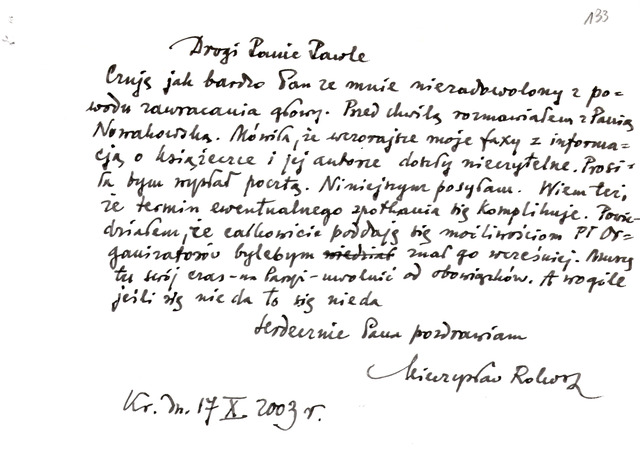 133
Drogi Panie Pawle
Czuję jak bardzo Pan ze mnie niezadowolony z po-
wodu zawracania głowy. Przed chwilą rozmawiałem z Panią
Nowakowską. Mówiła, że wczorajsze moje faxy z informa-
cją o książeczce i jej autorze doszły nieczytelne. Prosi-
ła bym wysłał pocztą. Niniejszym posyłam. Wiem też,
że termin ewentualnego spotkania się komplikuje. Powie-
działem, że całkowicie poddaję się możliwościom PT Or-
ganizatorów bylebym wiedział znał go wcześniej. Muszę
tu swój czas - na Paryż - uwolnić od obowiązków. A wogóle
jeśli się nie da to się nieda
Serdecznie Pana pozdrawiam
Mieczysław
Kr. dn. 17 X 2003 r.